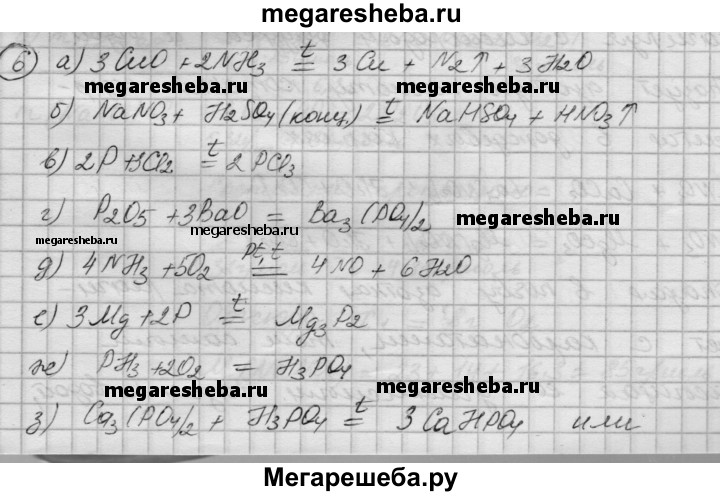 megaresheba.ru
6 а) 3CuO + 2NH3 t= 3Cu + N2↑ + 3H2O
megaresheba.ru megaresheba.ru
б) NaNO3 + H2SO4 (конц.) t= NaHSO4 + HNO3↑
в) 2P + 3Cl2 t= 2PCl3
г) P2O5 + 3BaO = Ba3(PO4)2 megaresheba.ru
megaresheba.ru megaresheba.ru
д) 4NH3 + 5O2 Pt, t= 4NO + 6H2O
е) 3Mg + 2P t= Mg3P2
ж) PH3 + 2O2 = H3PO4
megaresheba.ru megaresheba.ru
з) Ca3(PO4)2 + H3PO4 t= 3CaHPO4 или
Мегарешеба.ру